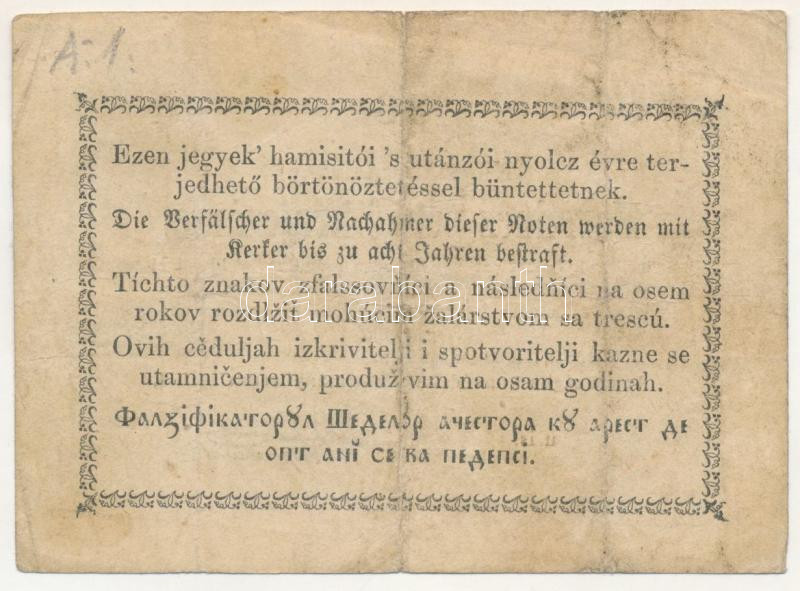 A. 1.
Ezen jegyek' hamisitói 's utánzói nyolcz évre ter-
jedhető börtönöztetéssel büntettetnek.
Die Verfälscher und Nachahmer dieser Noten werden mit
Kerker bis zu acht Jahren bestraft.
Tíchto znakov zfalssovníci a následňíci na osem
rokov rozdlžiť mohúcim žalárstvom sa trescú.
Ovih cěduljah izkrivitelji i spotvoritelji kazne se
utamničenjem, produživim na osam godinah.
Фалꙁіфікаторꙋл Шеделѡр ачестора кꙋ арест де
опт анĭ се ва педепсі.
darabanth